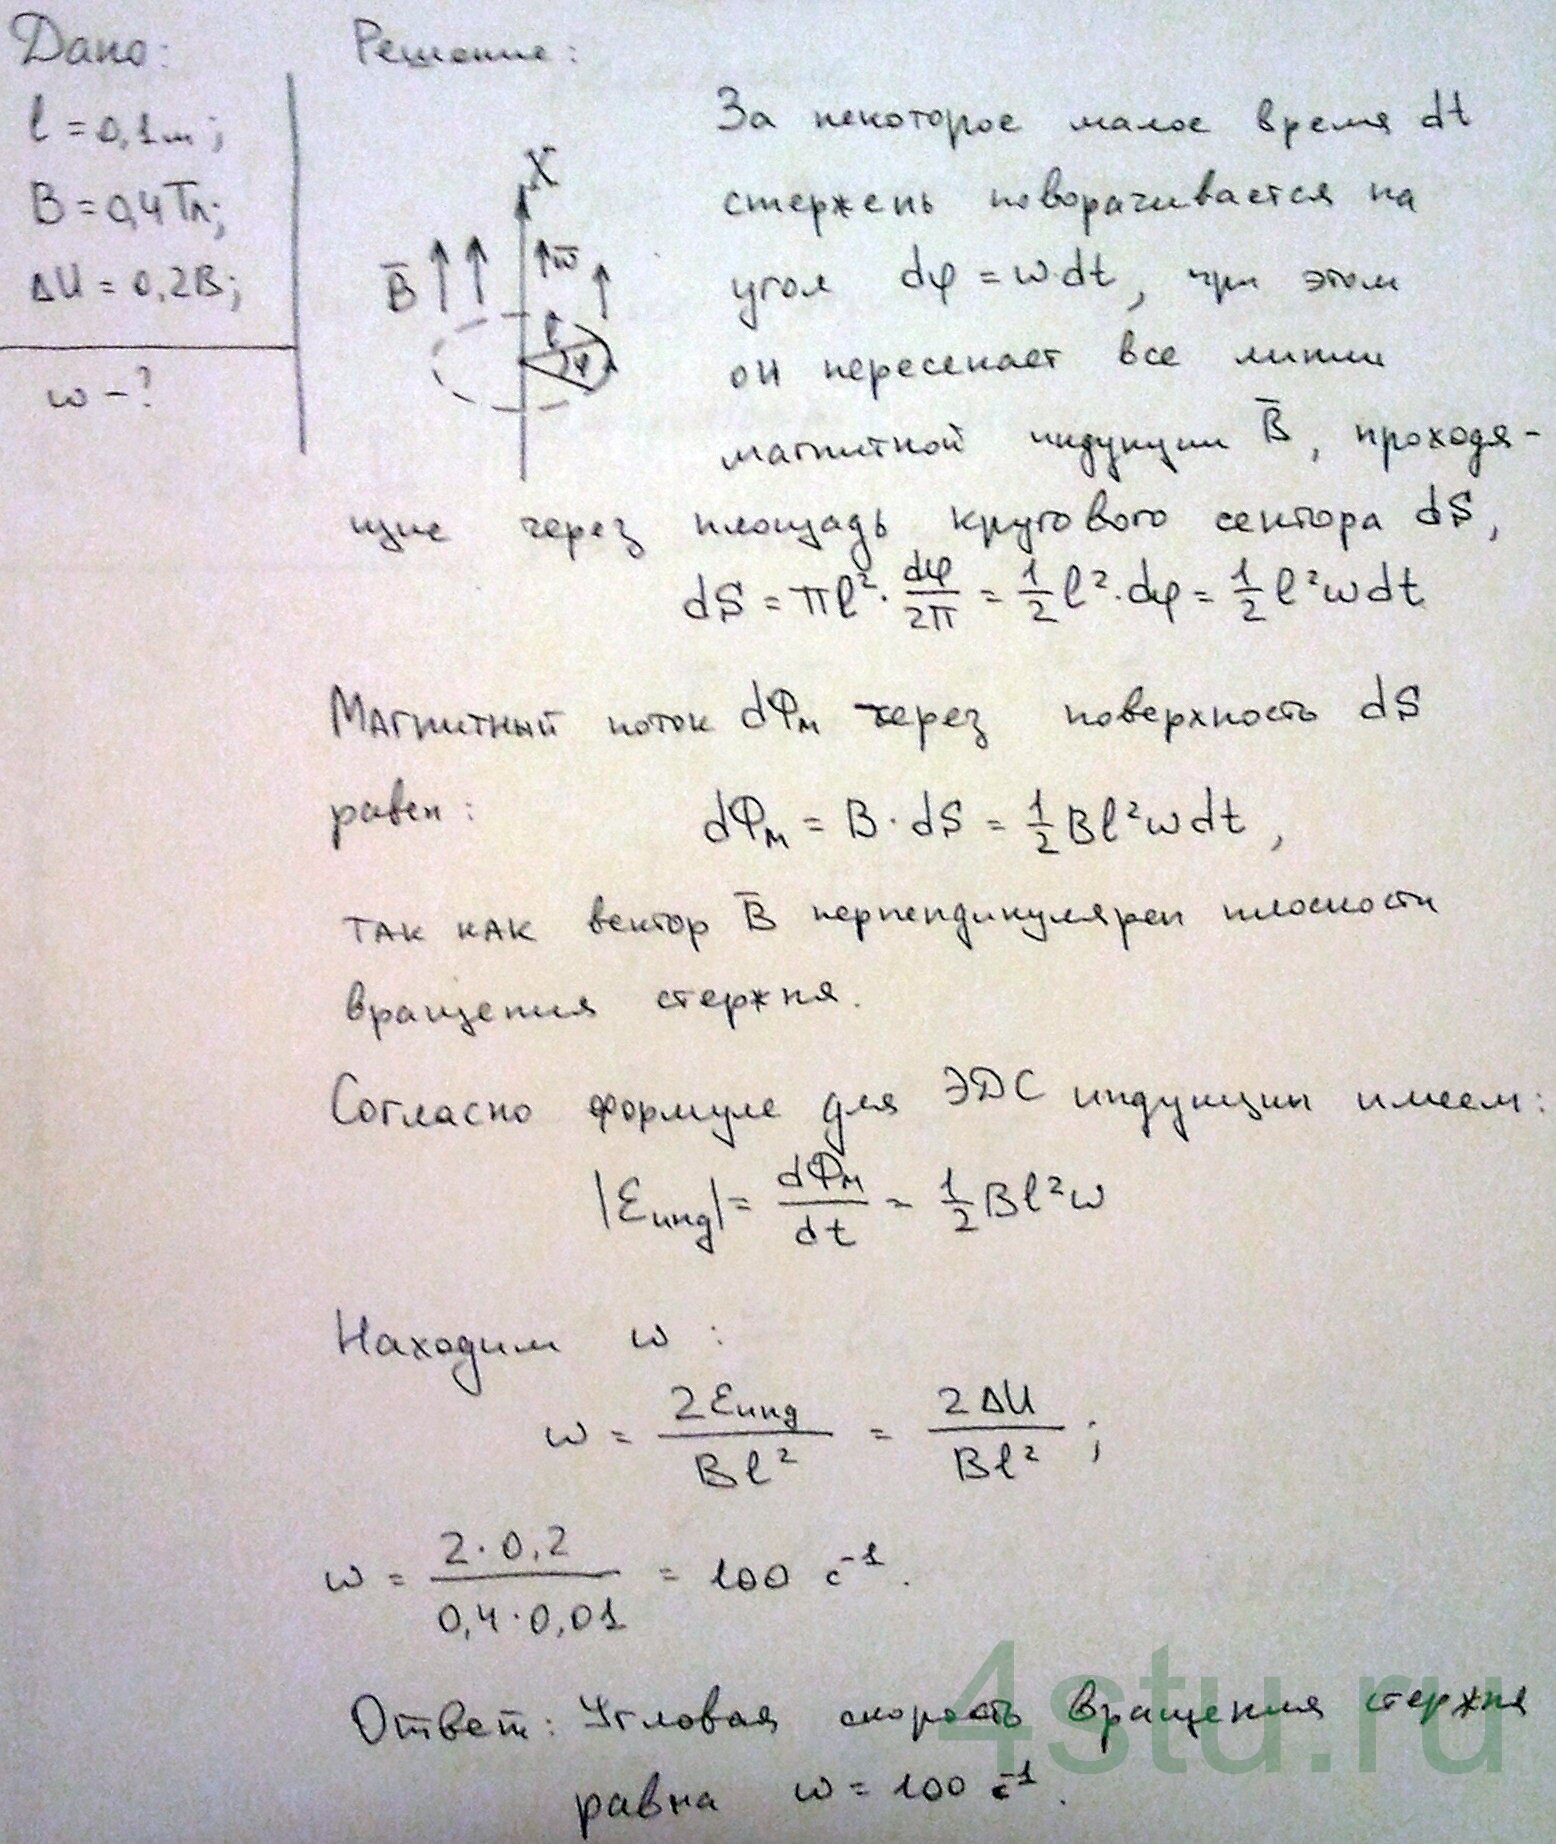 Дано:
l = 0,1м;
B = 0,4Тл;
ΔU = 0,2В;
ω - ?
Решение:
X
B̅
ω̅
l
φ
За некоторое малое время dt
стержень поворачивается на
угол dφ = ω·dt, при этом
он пересекает все линии
магнитной индукции B̅, проходя-
щие через площадь кругового сектора dS,
dS = πl²·dφ/2π = 1/2 l²·dφ = 1/2 l²ωdt
Магнитный поток dΦм через поверхность dS
равен: dΦм = B·dS = 1/2 Bl²ωdt,
так как вектор B̅ перпендикулярен плоскости
вращения стержня.
Согласно формуле для ЭДС индукции имеем:
|Ɛинд| = dΦм/dt = 1/2 Bl²ω
Находим ω:
ω = 2Ɛинд/Bl² = 2ΔU/Bl²;
ω = 2·0,2/0,4·0,01 = 100 с⁻¹.
Ответ: Угловая скорость вращения стержня
равна ω = 100 с⁻¹.
4stu.ru